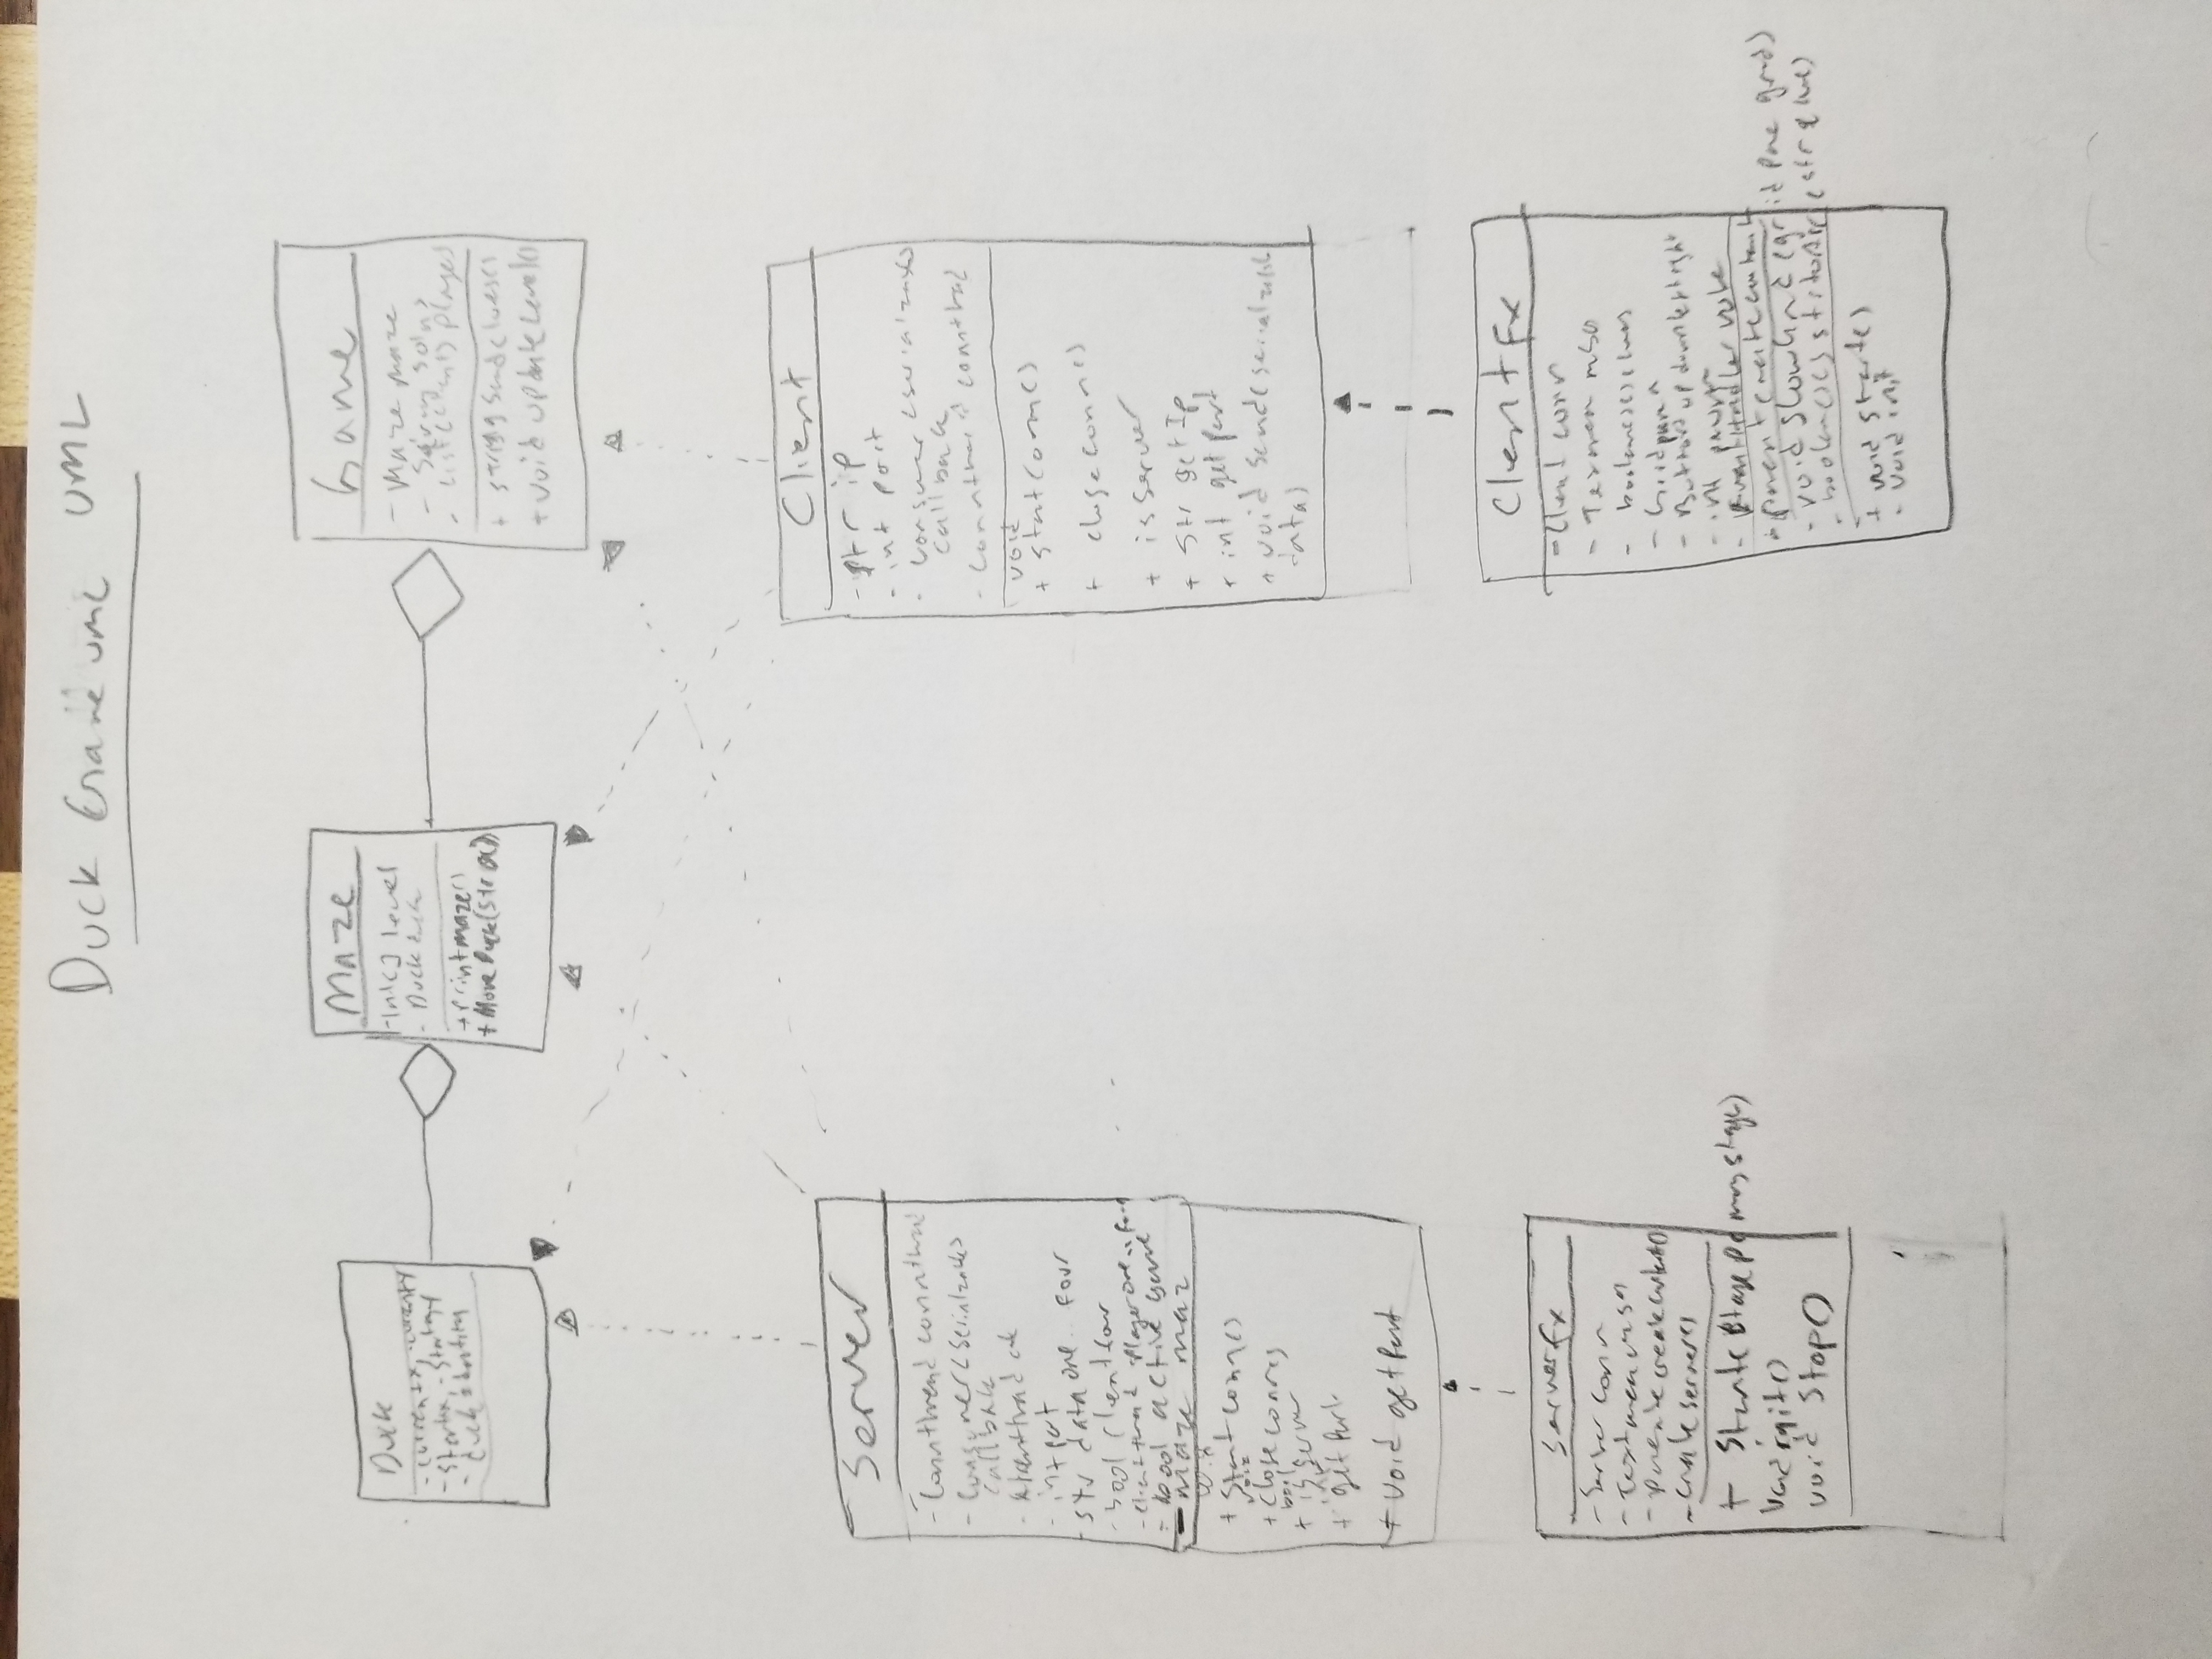 Duck Game UML UML
Duck
- currentx, - currenty
- startx, - starty
- duck identity
Maze
- Int[] level
- Duck duck
+ printmaze()
+ Move Duck(str
Game
- Maze maze
- String soln
- List(Client) players
+ string sendclues()
+ void updateLevel()
Server
- Connthread connthread
- Consumer<Serializable>
callback
- int port
- str data one.. four
- bool clientfour
- clientthread playerone.. four
- bool active game
- maze maz
+ Start conn()
void
+ close conn()
bool
+ isServer
int
+ getPort
+ void getPort
Client
- str ip
- int port
- Consumer<serializable>
callback
- Connthread connthread
void
+ startconn()
+ closeconn()
+ isServer
+ Str getIp
+ int getPort
+ void send(serializable
data)
Serverfx
- Server conn
- parent createcontent()
- create server()
+ Start(Stage primary stage)
void init()
void Stop()
Clientfx
- Client conn
- boolean[][] clues
- Gridpane
- Buttons up down left right
- int
- EventHandler
- parent createcontent
- void showGrid (grid pane grid)
- boolean[][] strtoArr(str clue)
+ void start()
- void init